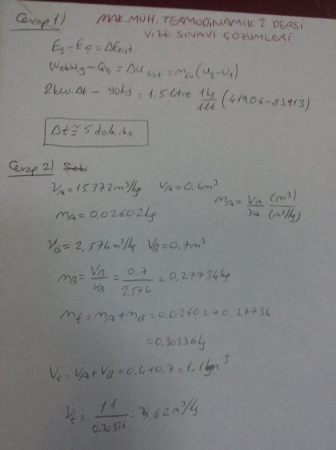 Cevap 1) MAK. MÜH. TERMODİNAMİK I DERSİ
VİZE SINAVI ÇÖZÜMLERİ
Eg - Eç = ΔEsist
Welek,g - Qç = ΔUsist = msu (u2 - u1)
2kw.Δt - 90kJ = 1.5 litre 1kg/1lt (419.06 - 83.913)
Δt ≅ 5 dak.
Cevap 2)
νA = 15.372 m³/kg VA = 0.4 m³ mA = VA/νA (m³)/(m³/kg)
mA = 0,02602 kg
νB = 2,524 m³/kg VB = 0.7 m³
mB = VB/νB = 0.7/2,524 = 0,27734 kg
mt = mA + mB = 0.02602 + 0.27734
= 0.30336 kg
Vt = VA + VB = 0.4 + 0.7 = 1.1 m³
νt = 1.1/0.30336 = 3,62 m³/kg.